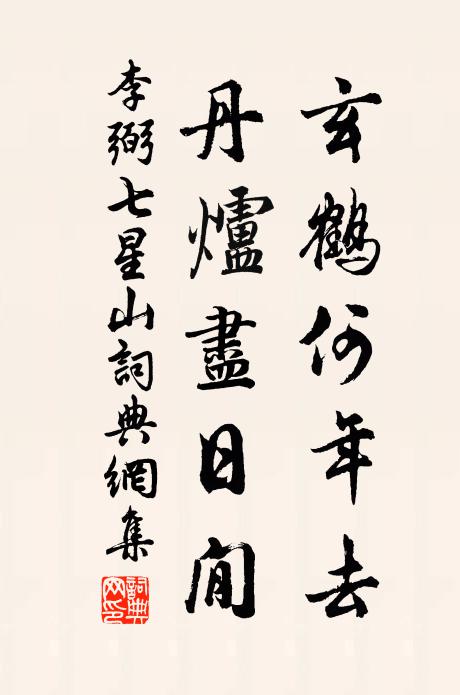 玄鶴何年去
丹爐盡日閒
李弼七星山詞典網集
詞典网印